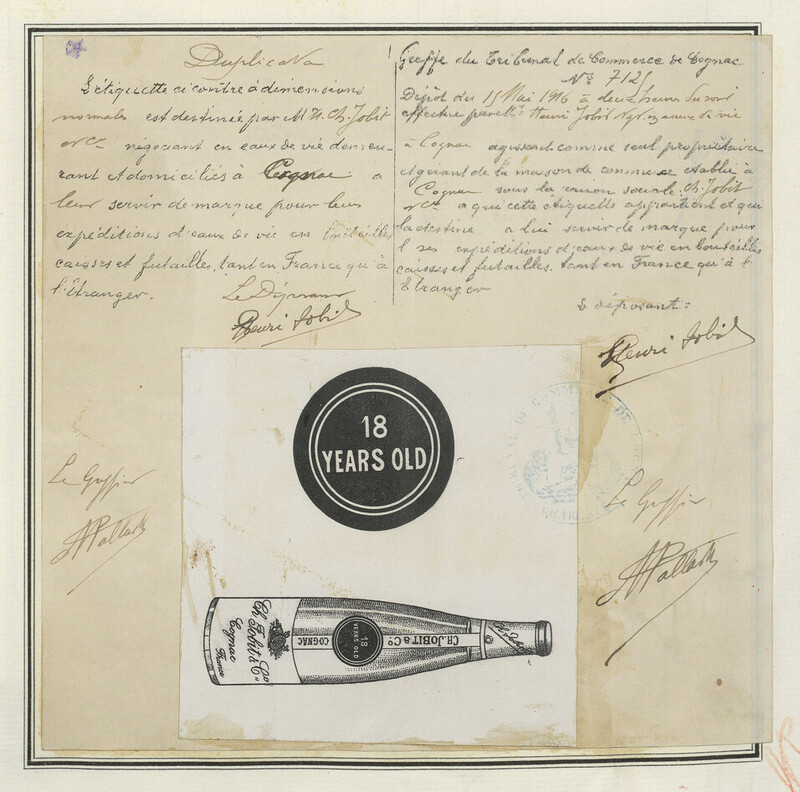 Duplicata
L'étiquette ci contre à dimensions
normales est destinée par M H. Ch. Jobit
& Co négociant en eaux de vie demeu-
rant et domiciliés à Cognac a
leur servir de marque pour leurs
expéditions d'eaux de vie en bouteilles
caisses et futailles, tant en France qu'à
l'Étranger.
Le Déposant
Henri Jobit
Greffe du Tribunal de Commerce de Cognac
No 712
Dépôt du 15 Mai 1916 à deux heures du soir
effectué par Henri Jobit eaux de vie
à Cognac agissant comme seul propriétaire
et gérant de la maison de commerce établie à
Cognac sous la raison sociale Ch. Jobit
& Co a qui cette étiquette appartient et qui
la destine a lui servir de marque pour
ses expéditions d'eaux de vie en bouteilles
caisses et futailles, tant en France qu'à l'
Étranger
Le déposant:
Henri Jobit
Le Greffier
Le Greffier
18
YEARS OLD
Ch. Jobit & Co
Cognac
France
COGNAC
18
YEARS OLD
CH. JOBIT & Co